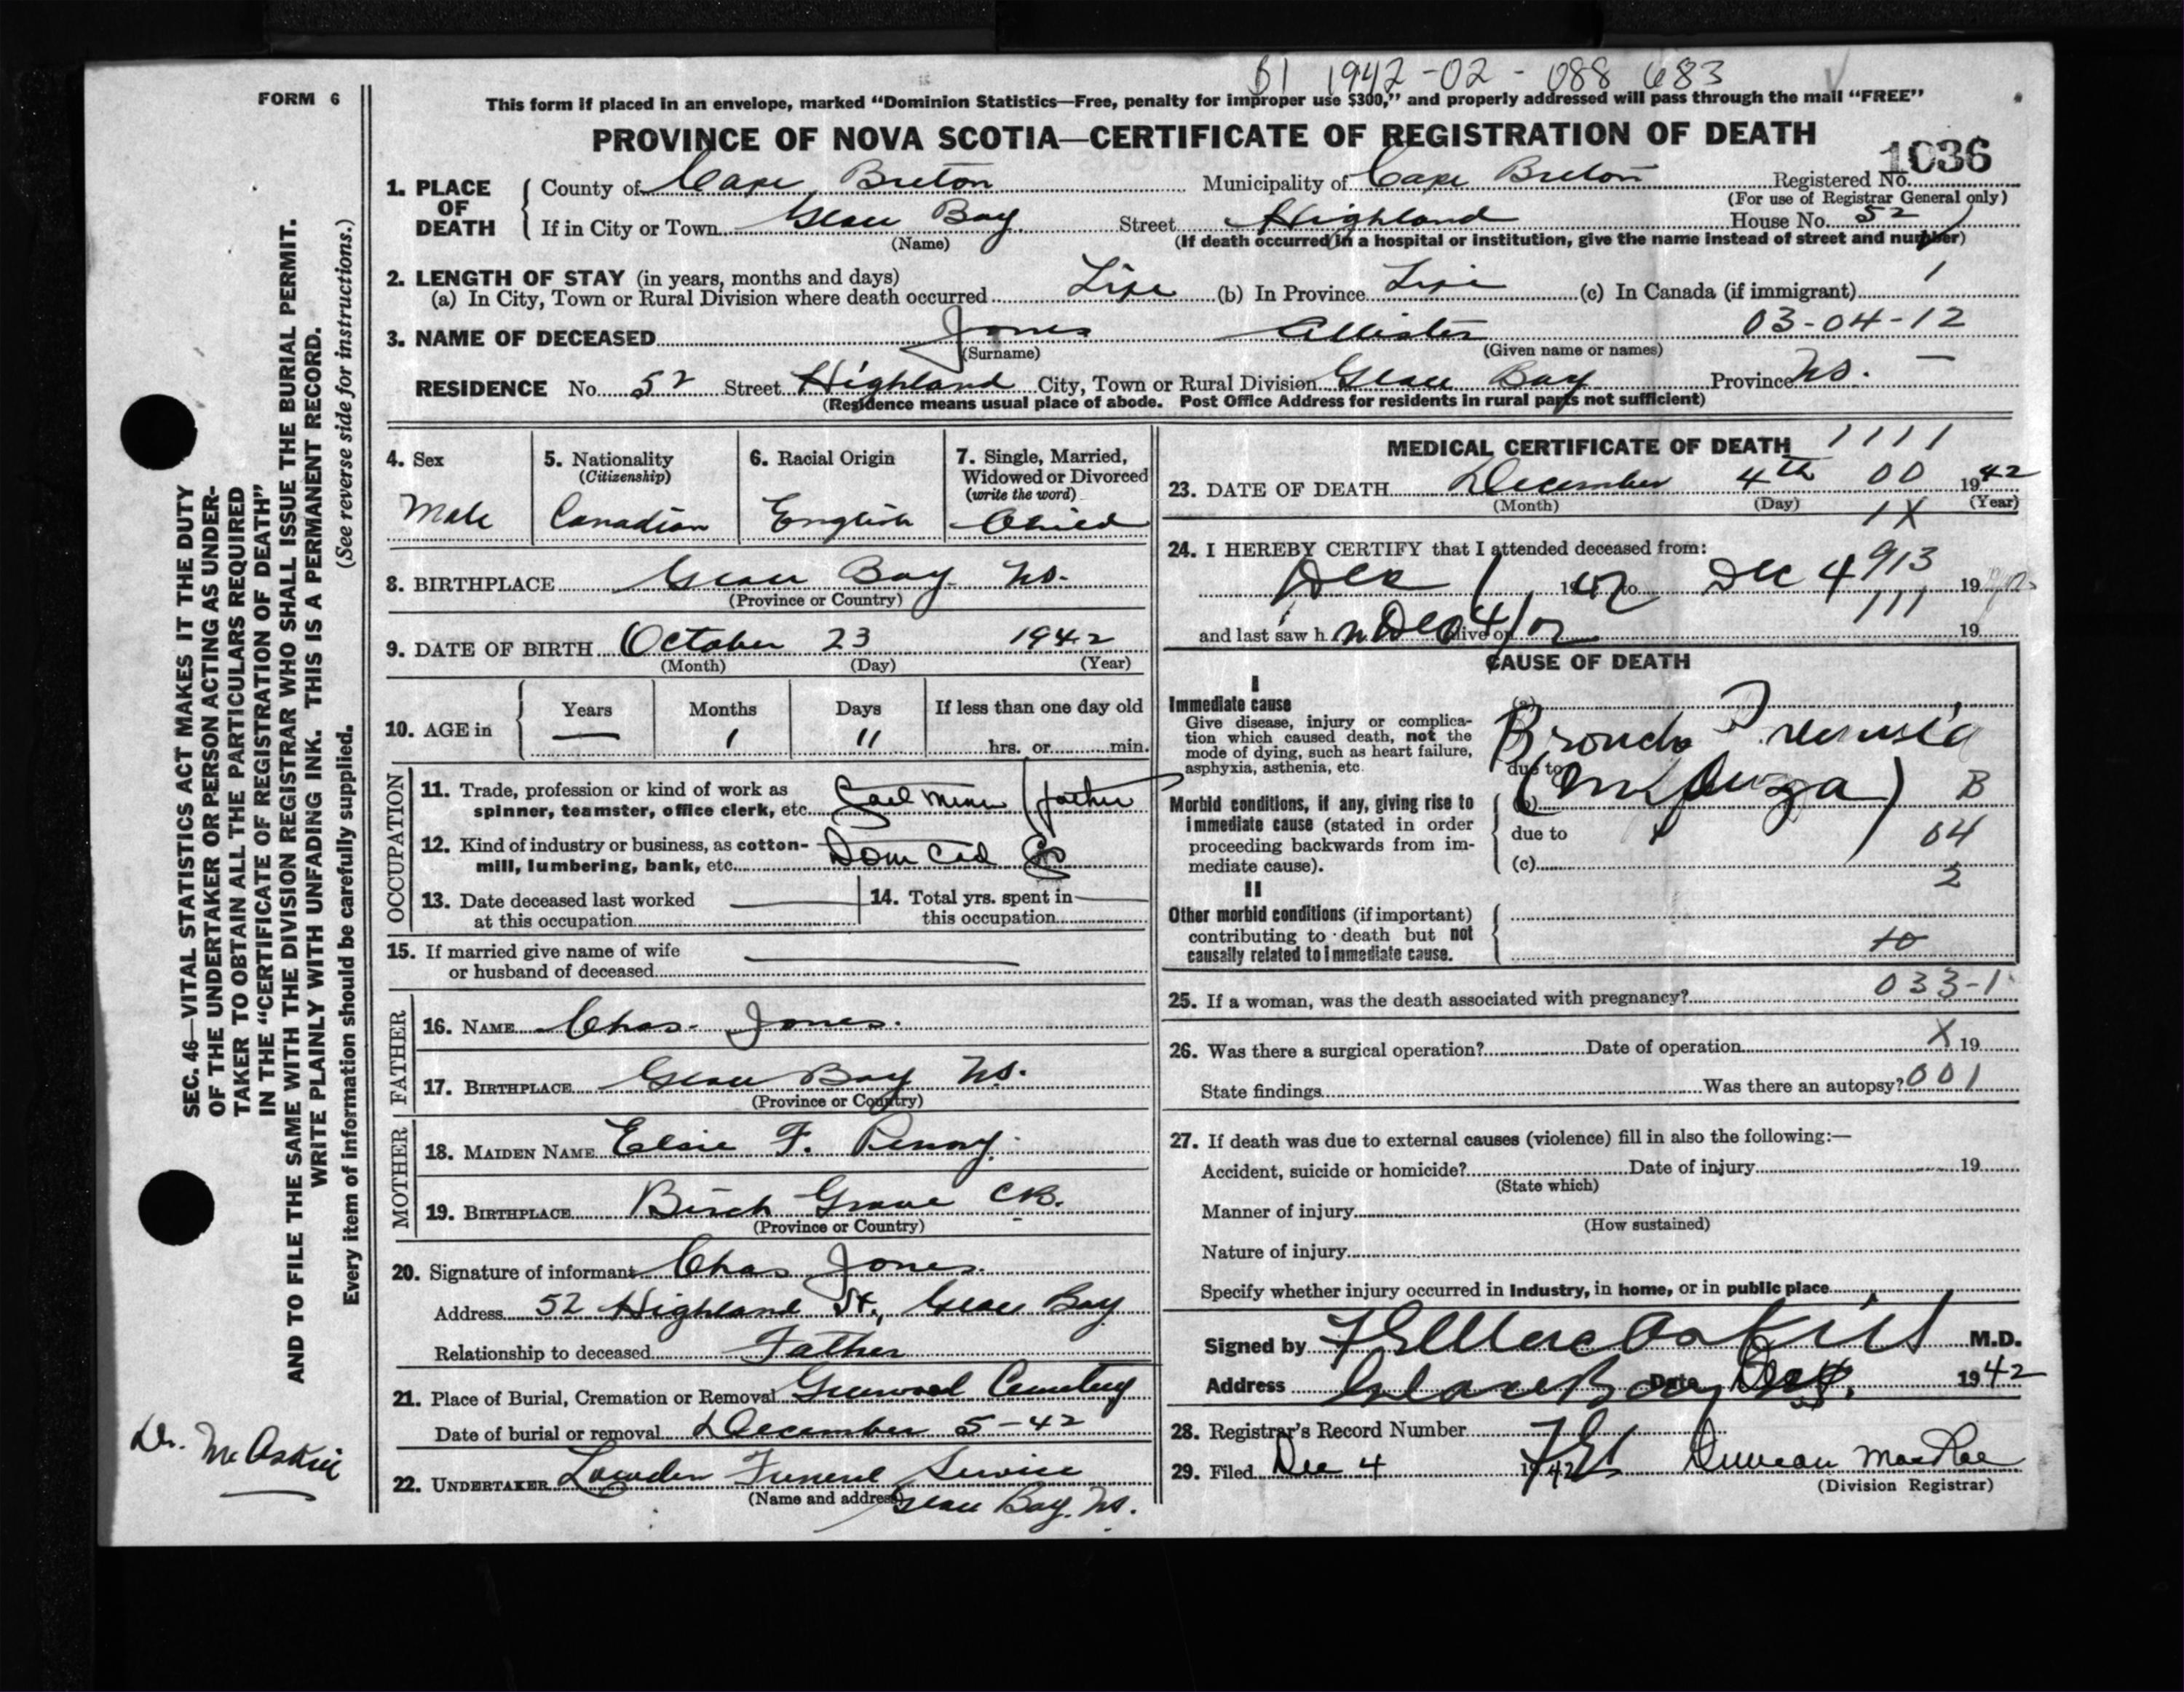 B1 1942-02-088 683
FORM 6
This form if placed in an envelope, marked “Dominion Statistics—Free, penalty for improper use $300,” and properly addressed will pass through the mail “FREE”
PROVINCE OF NOVA SCOTIA—CERTIFICATE OF REGISTRATION OF DEATH
1036
1. PLACE OF DEATH County of Cape Breton Municipality of Cape Breton Registered No.
(For use of Registrar General only)
If in City or Town Glace Bay Street Highland House No. 52
(Name) (If death occurred in a hospital or institution, give the name instead of street and number)
2. LENGTH OF STAY (in years, months and days)
(a) In City, Town or Rural Division where death occurred Life (b) In Province Life (c) In Canada (if immigrant) 1
3. NAME OF DECEASED Jones Allister 03-04-12
(Surname) (Given name or names)
RESIDENCE No. 52 Street Highland City, Town or Rural Division Glace Bay Province N.S. —
(Residence means usual place of abode. Post Office Address for residents in rural parts not sufficient)
4. Sex
Male
5. Nationality
(Citizenship)
Canadian
6. Racial Origin
English
7. Single, Married,
Widowed or Divorced
(write the word)
Child
8. BIRTHPLACE Glace Bay N.S.
(Province or Country)
9. DATE OF BIRTH October 23 1942
(Month) (Day) (Year)
10. AGE in
Years Months Days If less than one day old
— 1 11 hrs. or min.
OCCUPATION
11. Trade, profession or kind of work as
spinner, teamster, office clerk, etc. (father
12. Kind of industry or business, as cotton-
mill, lumbering, bank, etc. Dom Co
13. Date deceased last worked
at this occupation —
14. Total yrs. spent in
this occupation —
15. If married give name of wife
or husband of deceased —
FATHER
16. NAME Chas. Jones.
17. BIRTHPLACE Glace Bay N.S.
(Province or Country)
MOTHER
18. MAIDEN NAME Elsie F. Penny.
19. BIRTHPLACE Birch Grove C.B.
(Province or Country)
20. Signature of informant Chas Jones.
Address 52 Highland St., Glace Bay
Relationship to deceased Father
21. Place of Burial, Cremation or Removal Greenwood Cemetery
Date of burial or removal December 5-42
22. UNDERTAKER Lowden Funeral Service
(Name and address) Glace Bay. N.S.
MEDICAL CERTIFICATE OF DEATH 1111
23. DATE OF DEATH December 4th 00 1942
(Month) (Day) (Year)
1X
24. I HEREBY CERTIFY that I attended deceased from:
Dec 1 1942 to Dec 4 913 19
111
and last saw h alive on Dec 4/42 19
CAUSE OF DEATH
I
Immediate cause
Give disease, injury or complica-
tion which caused death, not the
mode of dying, such as heart failure,
asphyxia, asthenia, etc.
(a) Broncho Pneumonia
due to
Morbid conditions, if any, giving rise to
immediate cause (stated in order
proceeding backwards from im-
mediate cause).
(b) (Influenza) B
due to 04
(c) 2
II
Other morbid conditions (if important)
contributing to death but not
causally related to immediate cause.
10
25. If a woman, was the death associated with pregnancy? 033-1
26. Was there a surgical operation? Date of operation X 19
State findings Was there an autopsy? 001
27. If death was due to external causes (violence) fill in also the following:—
Accident, suicide or homicide? Date of injury 19
(State which)
Manner of injury
(How sustained)
Nature of injury
Specify whether injury occurred in Industry, in home, or in public place
Signed by M.D.
Address Glace Bay Date Dec 4. 1942
28. Registrar's Record Number
29. Filed Dec 4 1942 Duncan MacRae
(Division Registrar)
SEC. 46—VITAL STATISTICS ACT MAKES IT THE DUTY
OF THE UNDERTAKER OR PERSON ACTING AS UNDER-
TAKER TO OBTAIN ALL THE PARTICULARS REQUIRED
IN THE “CERTIFICATE OF REGISTRATION OF DEATH”
AND TO FILE THE SAME WITH THE DIVISION REGISTRAR WHO SHALL ISSUE THE BURIAL PERMIT.
WRITE PLAINLY WITH UNFADING INK. THIS IS A PERMANENT RECORD.
Every item of information should be carefully supplied. (See reverse side for instructions.)
Dr. McAskill